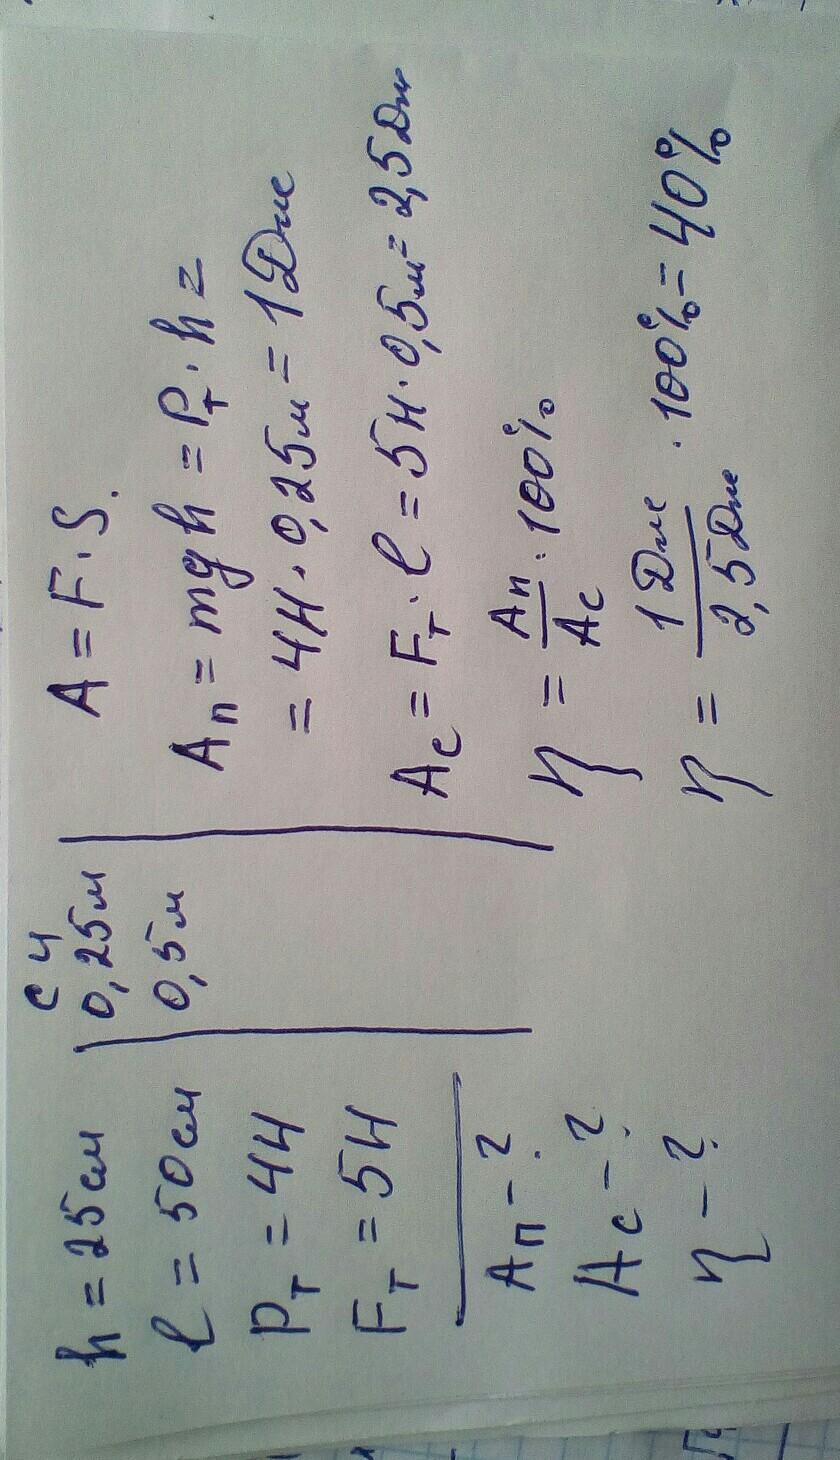 h = 25см
l = 50см
Pт = 4Н
Fт = 5Н
Aп - ?
Aс - ?
η - ?
СИ
0,25м
0,5м
A = F · S.
Aп = mgh = Pт · h =
= 4Н · 0,25м = 1Дж
Aс = Fт · l = 5Н · 0,5м = 2,5Дж
η = Aп/Aс · 100%
η = 1Дж/2,5Дж · 100% = 40%